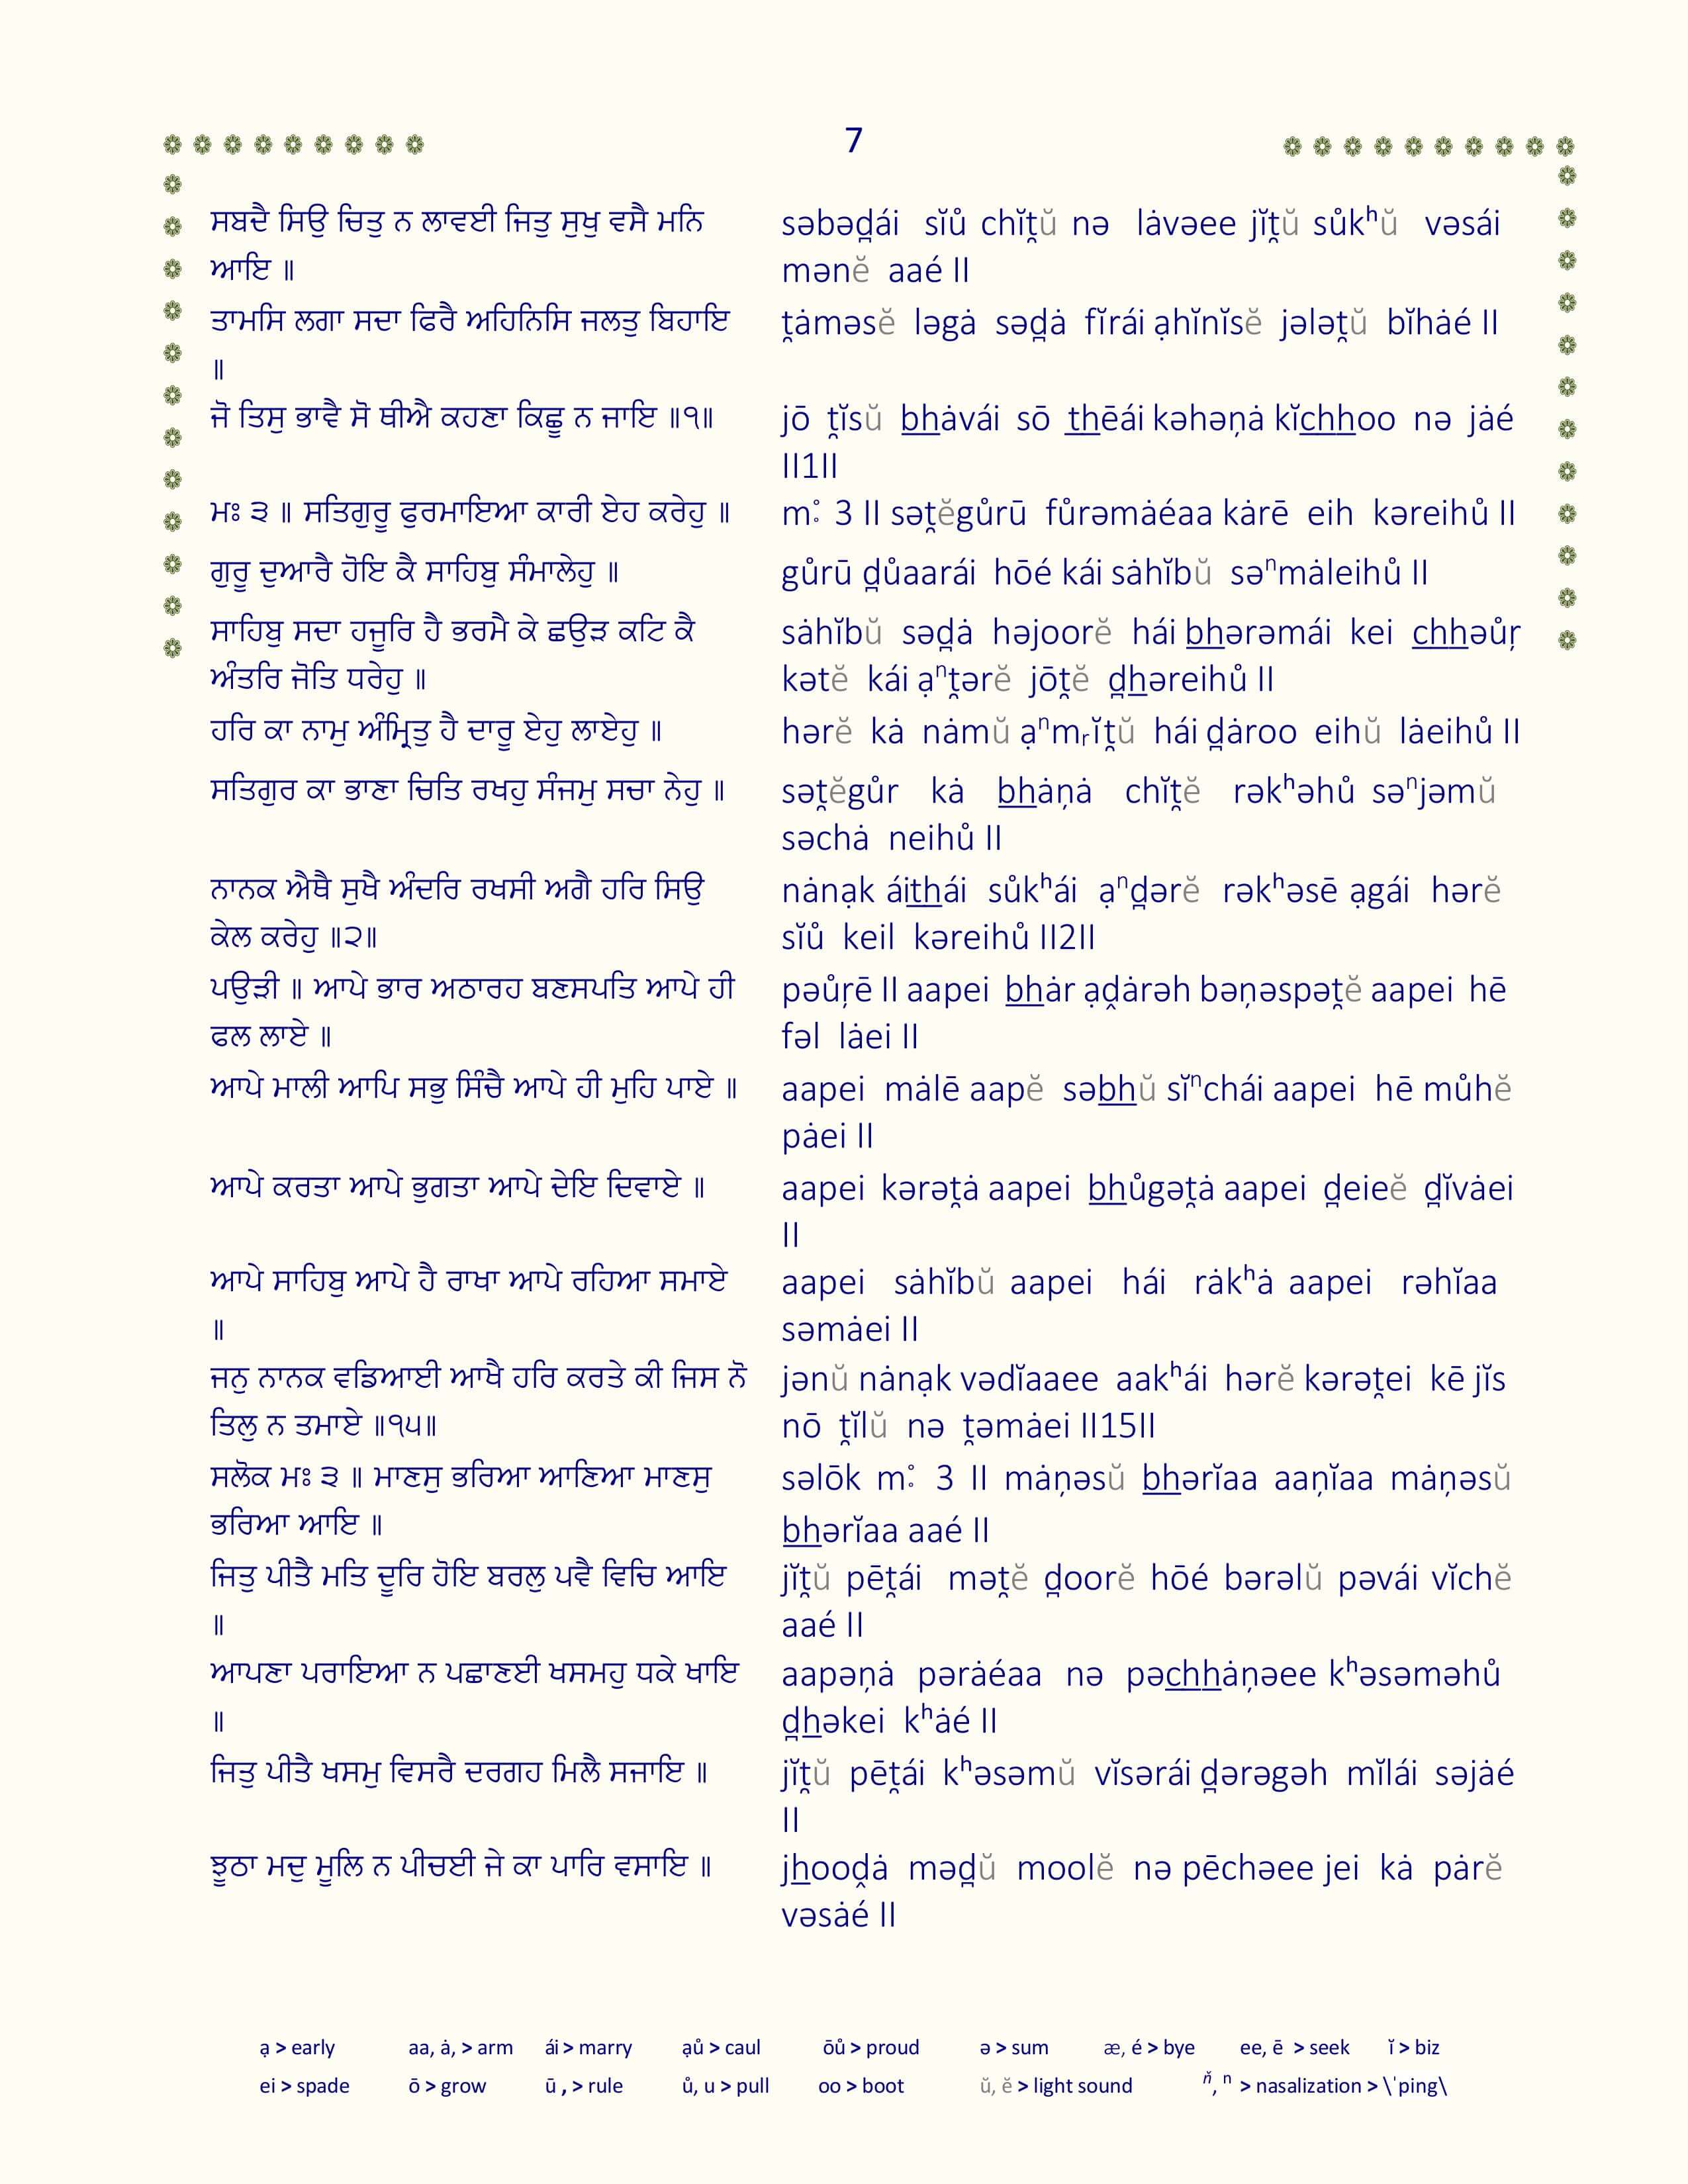 7
ਸਬਦੈ ਸਿਉ ਚਿਤੁ ਨ ਲਾਵਈ ਜਿਤੁ ਸੁਖੁ ਵਸੈ ਮਨਿ
ਆਇ ॥
səbəd̪ái sĭů chĭt̪ŭ nə lȧvəee jĭt̪ŭ sůkʰŭ vəsái
mənĕ aaé II
ਤਾਮਸਿ ਲਗਾ ਸਦਾ ਫਿਰੈ ਅਹਿਨਿਸਿ ਜਲਤੁ ਬਿਹਾਇ
॥
t̪ȧməsĕ ləgȧ səd̪ȧ fĭrái ạhĭnĭsĕ jələt̪ŭ bĭhȧé II
ਜੋ ਤਿਸੁ ਭਾਵੈ ਸੋ ਥੀਐ ਕਹਣਾ ਕਿਛੂ ਨ ਜਾਇ ॥੧॥
jō t̪ĭsŭ b̲h̲ȧvái sō t̲h̲ēái kəhəṇȧ kĭc̲h̲h̲oo nə jȧé
II1II
ਮਃ ੩ ॥ ਸਤਿਗੁਰੂ ਫੁਰਮਾਇਆ ਕਾਰੀ ਏਹ ਕਰੇਹੁ ॥
m: 3 II sət̪ĕgůrū fůrəmȧéaa kȧrē eih kəreihů II
ਗੁਰੂ ਦੁਆਰੈ ਹੋਇ ਕੈ ਸਾਹਿਬੁ ਸੰਮਾਲੇਹੁ ॥
gůrū d̪ůaarái hōé kái sȧhĭbŭ səⁿmȧleihů II
ਸਾਹਿਬੁ ਸਦਾ ਹਜੂਰਿ ਹੈ ਭਰਮੈ ਕੇ ਛਉੜ ਕਟਿ ਕੈ
ਅੰਤਰਿ ਜੋਤਿ ਧਰੇਹੁ ॥
sȧhĭbŭ səd̪ȧ həjoorĕ hái b̲h̲ərəmái kei c̲h̲h̲əůŗ
kətĕ kái ạⁿt̪ərĕ jōt̪ĕ d̪h̲əreihů II
ਹਰਿ ਕਾ ਨਾਮੁ ਅੰਮ੍ਰਿਤੁ ਹੈ ਦਾਰੂ ਏਹੁ ਲਾਏਹੁ ॥
hərĕ kȧ nȧmŭ ạⁿmᵣĭt̪ŭ hái d̪ȧroo eihŭ lȧeihů II
ਸਤਿਗੁਰ ਕਾ ਭਾਣਾ ਚਿਤਿ ਰਖਹੁ ਸੰਜਮੁ ਸਚਾ ਨੇਹੁ ॥
sət̪ĕgůr kȧ b̲h̲ȧṇȧ chĭt̪ĕ rəkʰəhů səⁿjəmŭ
səchȧ neihů II
ਨਾਨਕ ਐਥੈ ਸੁਖੈ ਅੰਦਰਿ ਰਖਸੀ ਅਗੈ ਹਰਿ ਸਿਉ
ਕੇਲ ਕਰੇਹੁ ॥੨॥
nȧnạk áit̲h̲ái sůkʰái ạⁿd̪ərĕ rəkʰəsē ạgái hərĕ
sĭů keil kəreihů II2II
ਪਉੜੀ ॥ ਆਪੇ ਭਾਰ ਅਠਾਰਹ ਬਣਸਪਤਿ ਆਪੇ ਹੀ
ਫਲ ਲਾਏ ॥
pəůŗē II aapei b̲h̲ȧr ạḓȧrəh bəṇəspət̪ĕ aapei hē
fəl lȧei II
ਆਪੇ ਮਾਲੀ ਆਪਿ ਸਭੁ ਸਿੰਚੈ ਆਪੇ ਹੀ ਮੁਹਿ ਪਾਏ ॥
aapei mȧlē aapĕ səb̲h̲ŭ sĭⁿchái aapei hē můhĕ
pȧei II
ਆਪੇ ਕਰਤਾ ਆਪੇ ਭੁਗਤਾ ਆਪੇ ਦੇਇ ਦਿਵਾਏ ॥
aapei kərət̪ȧ aapei b̲h̲ůgət̪ȧ aapei d̪eieĕ d̪ĭvȧei
II
ਆਪੇ ਸਾਹਿਬੁ ਆਪੇ ਹੈ ਰਾਖਾ ਆਪੇ ਰਹਿਆ ਸਮਾਏ
॥
aapei sȧhĭbŭ aapei hái rȧkʰȧ aapei rəhĭaa
səmȧei II
ਜਨੁ ਨਾਨਕ ਵਡਿਆਈ ਆਖੈ ਹਰਿ ਕਰਤੇ ਕੀ ਜਿਸ ਨੋ
ਤਿਲੁ ਨ ਤਮਾਏ ॥੧੫॥
jənŭ nȧnạk vədĭaaee aakʰái hərĕ kərət̪ei kē jĭs
nō t̪ĭlŭ nə t̪əmȧei II15II
ਸਲੋਕ ਮਃ ੩ ॥ ਮਾਣਸੁ ਭਰਿਆ ਆਣਿਆ ਮਾਣਸੁ
ਭਰਿਆ ਆਇ ॥
səlōk m: 3 II mȧṇəsŭ b̲h̲ərĭaa aaṇĭaa mȧṇəsŭ
b̲h̲ərĭaa aaé II
ਜਿਤੁ ਪੀਤੈ ਮਤਿ ਦੂਰਿ ਹੋਇ ਬਰਲੁ ਪਵੈ ਵਿਚਿ ਆਇ
॥
jĭt̪ŭ pēt̪ái mət̪ĕ d̪oorĕ hōé bərəlŭ pəvái vĭchĕ
aaé II
ਆਪਣਾ ਪਰਾਇਆ ਨ ਪਛਾਣਈ ਖਸਮਹੁ ਧਕੇ ਖਾਇ
॥
aapəṇȧ pərȧéaa nə pəc̲h̲h̲ȧṇəee kʰəsəməhů
d̪h̲əkei kʰȧé II
ਜਿਤੁ ਪੀਤੈ ਖਸਮੁ ਵਿਸਰੈ ਦਰਗਹ ਮਿਲੈ ਸਜਾਇ ॥
jĭt̪ŭ pēt̪ái kʰəsəmŭ vĭsərái d̪ərəgəh mĭlái səjȧé
II
ਝੂਠਾ ਮਦੁ ਮੂਲਿ ਨ ਪੀਚਈ ਜੇ ਕਾ ਪਾਰਿ ਵਸਾਇ ॥
jh̲ooḓȧ məd̪ŭ moolĕ nə pēchəee jei kȧ pȧrĕ
vəsȧé II
ạ > early aa, ȧ, > arm ái > marry ạů > caul ōů > proud ə > sum æ, é > bye ee, ē > seek ĭ > biz
ei > spade ō > grow ū , > rule ů, u > pull oo > boot ŭ, ĕ > light sound ň, ⁿ > nasalization > \ˈping\